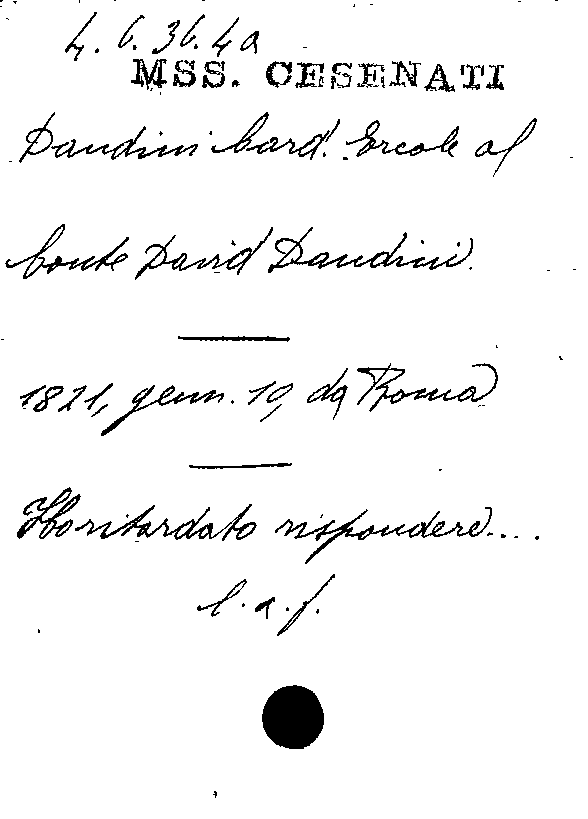 4. 6. 36. 4a
MSS. CESENATI
Dandini Card. Ercole al
Conte David Dandini.
1821, genn. 10, da Roma
Ho ritardato rispondere....
l. a. f.